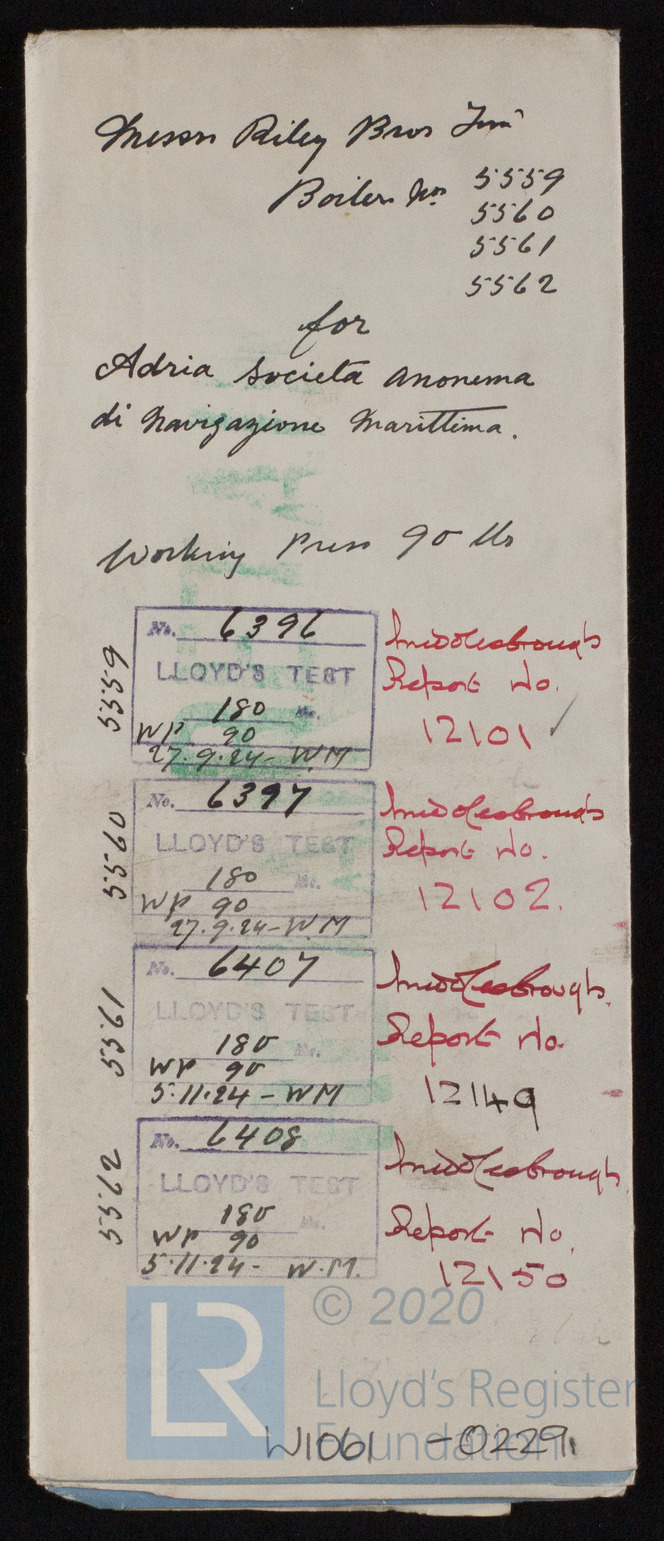 Messrs Riley Bros Limd
Boilers Nos 5559
5560
5561
5562
for
Adria Societa Anonema
di Navigazione Marittima.
Working Press 90 lbs
5559
No. 6396
LLOYD'S TEST
180
WP 90
27.9.24 - WM
Middlesbrough
Report No.
12101 ✓
5560
No. 6397
LLOYD'S TEST
180
WP 90
27.9.24 - WM
Middlesbrough
Report No.
12102.
5561
No. 6407
LLOYD'S TEST
180
WP 90
5.11.24 - WM
Middlesbrough
Report No.
12149
5562
No. 6408
LLOYD'S TEST
180
WP 90
5.11.24 - W.M.
Middlesbrough
Report No.
12150
© 2020
LR
Lloyd's Register
Foundation
W1061 - 0229